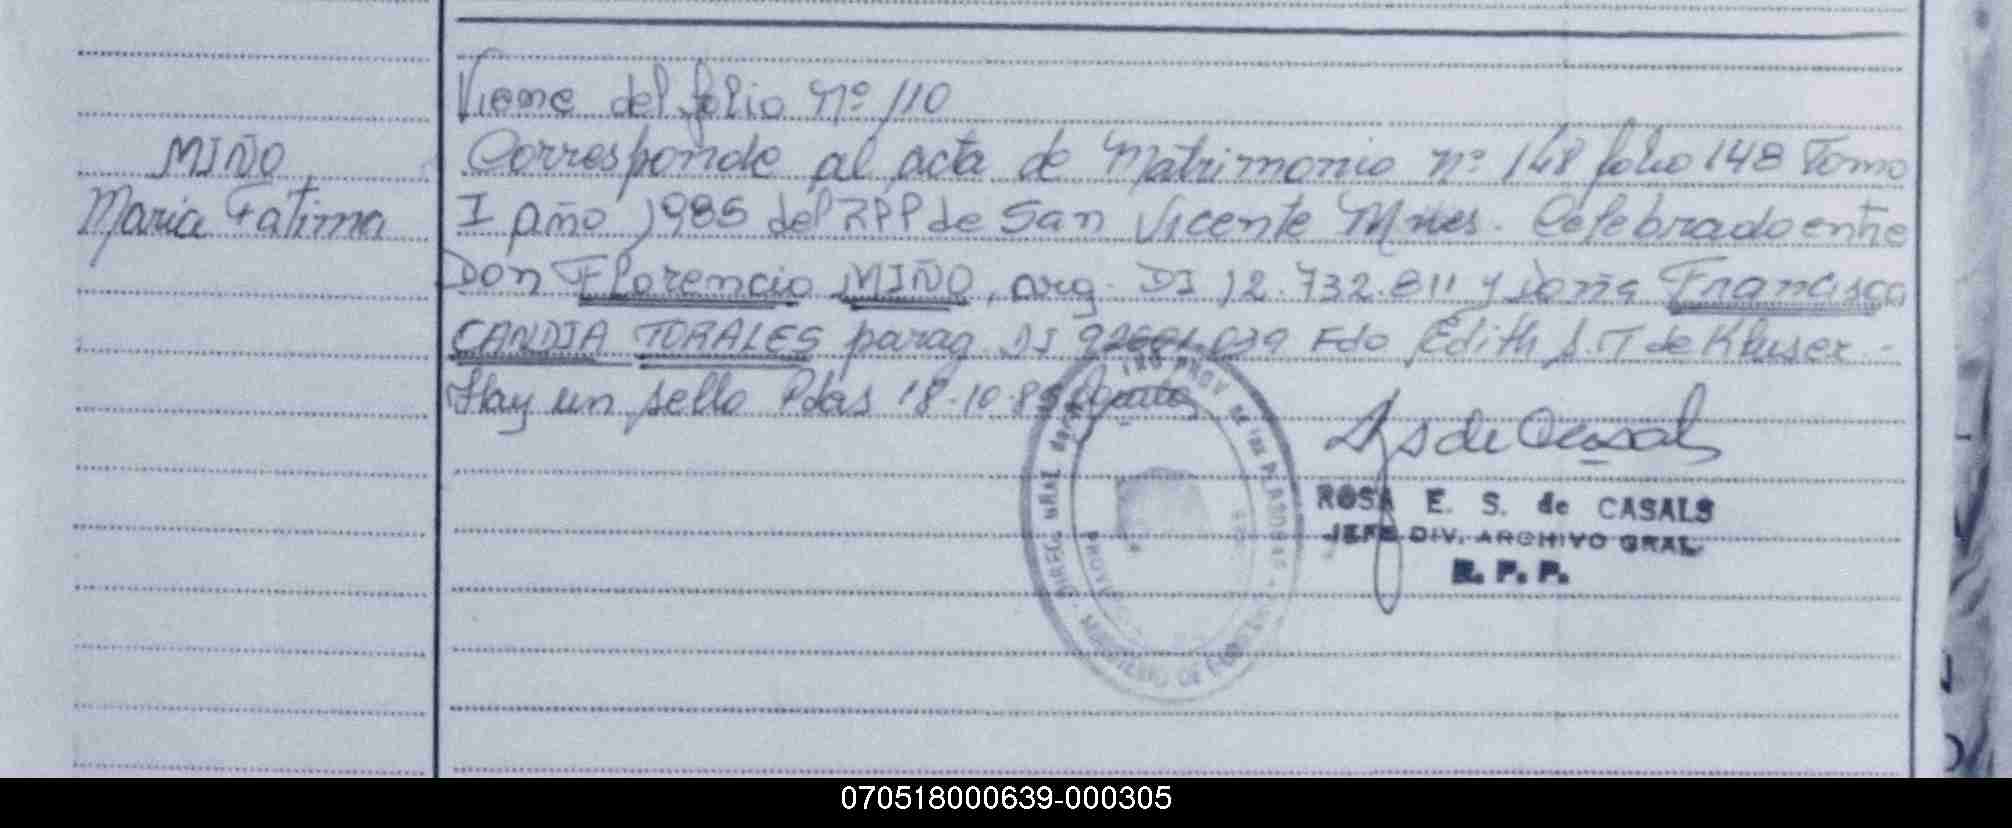 Viene del folio Nº 110
MIÑO
Maria Fatima
Corresponde al acta de Matrimonio nº 148 folio 148 Tomo
I año 1985 del RPP de San Vicente Mnes. Celebrado entre
Don Florencio MIÑO, arg. DI 12.732.811 y Doña Francisca
CANDIA TORALES parag. DI 039 Fdo Edith S.T de Kluser.-
Hay un sello Pdas 18-10-85
ROSA E. S. de CASALS
JEFE DIV. ARCHIVO GRAL.
R. P. P.
070518000639-000305